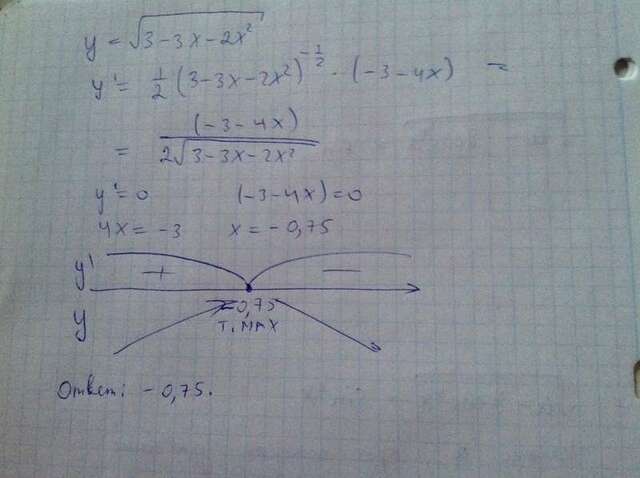 y = √(3-3x-2x²)
y' = 1/2 (3-3x-2x²)^(-1/2) · (-3-4x) =
= (-3-4x) / 2√(3-3x-2x²)
y'=0 (-3-4x)=0
4x = -3 x = -0,75
y' + —
y -0,75
т. MAX
Ответ: -0,75.